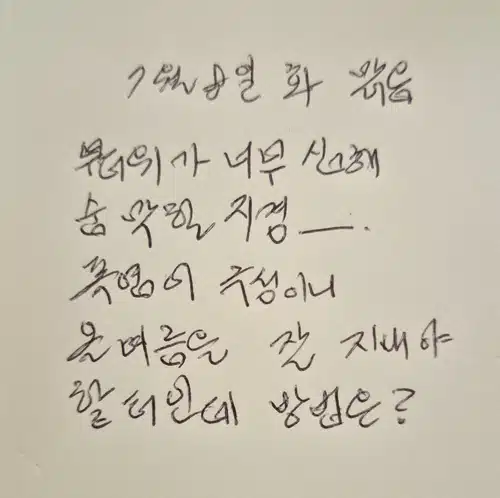 7월 8일 화 맑음
무더위가 너무 심해
숨 막힐 지경 —.
폭염이 극성이니
올 여름을 잘 지내야
할 터인데 방법은?